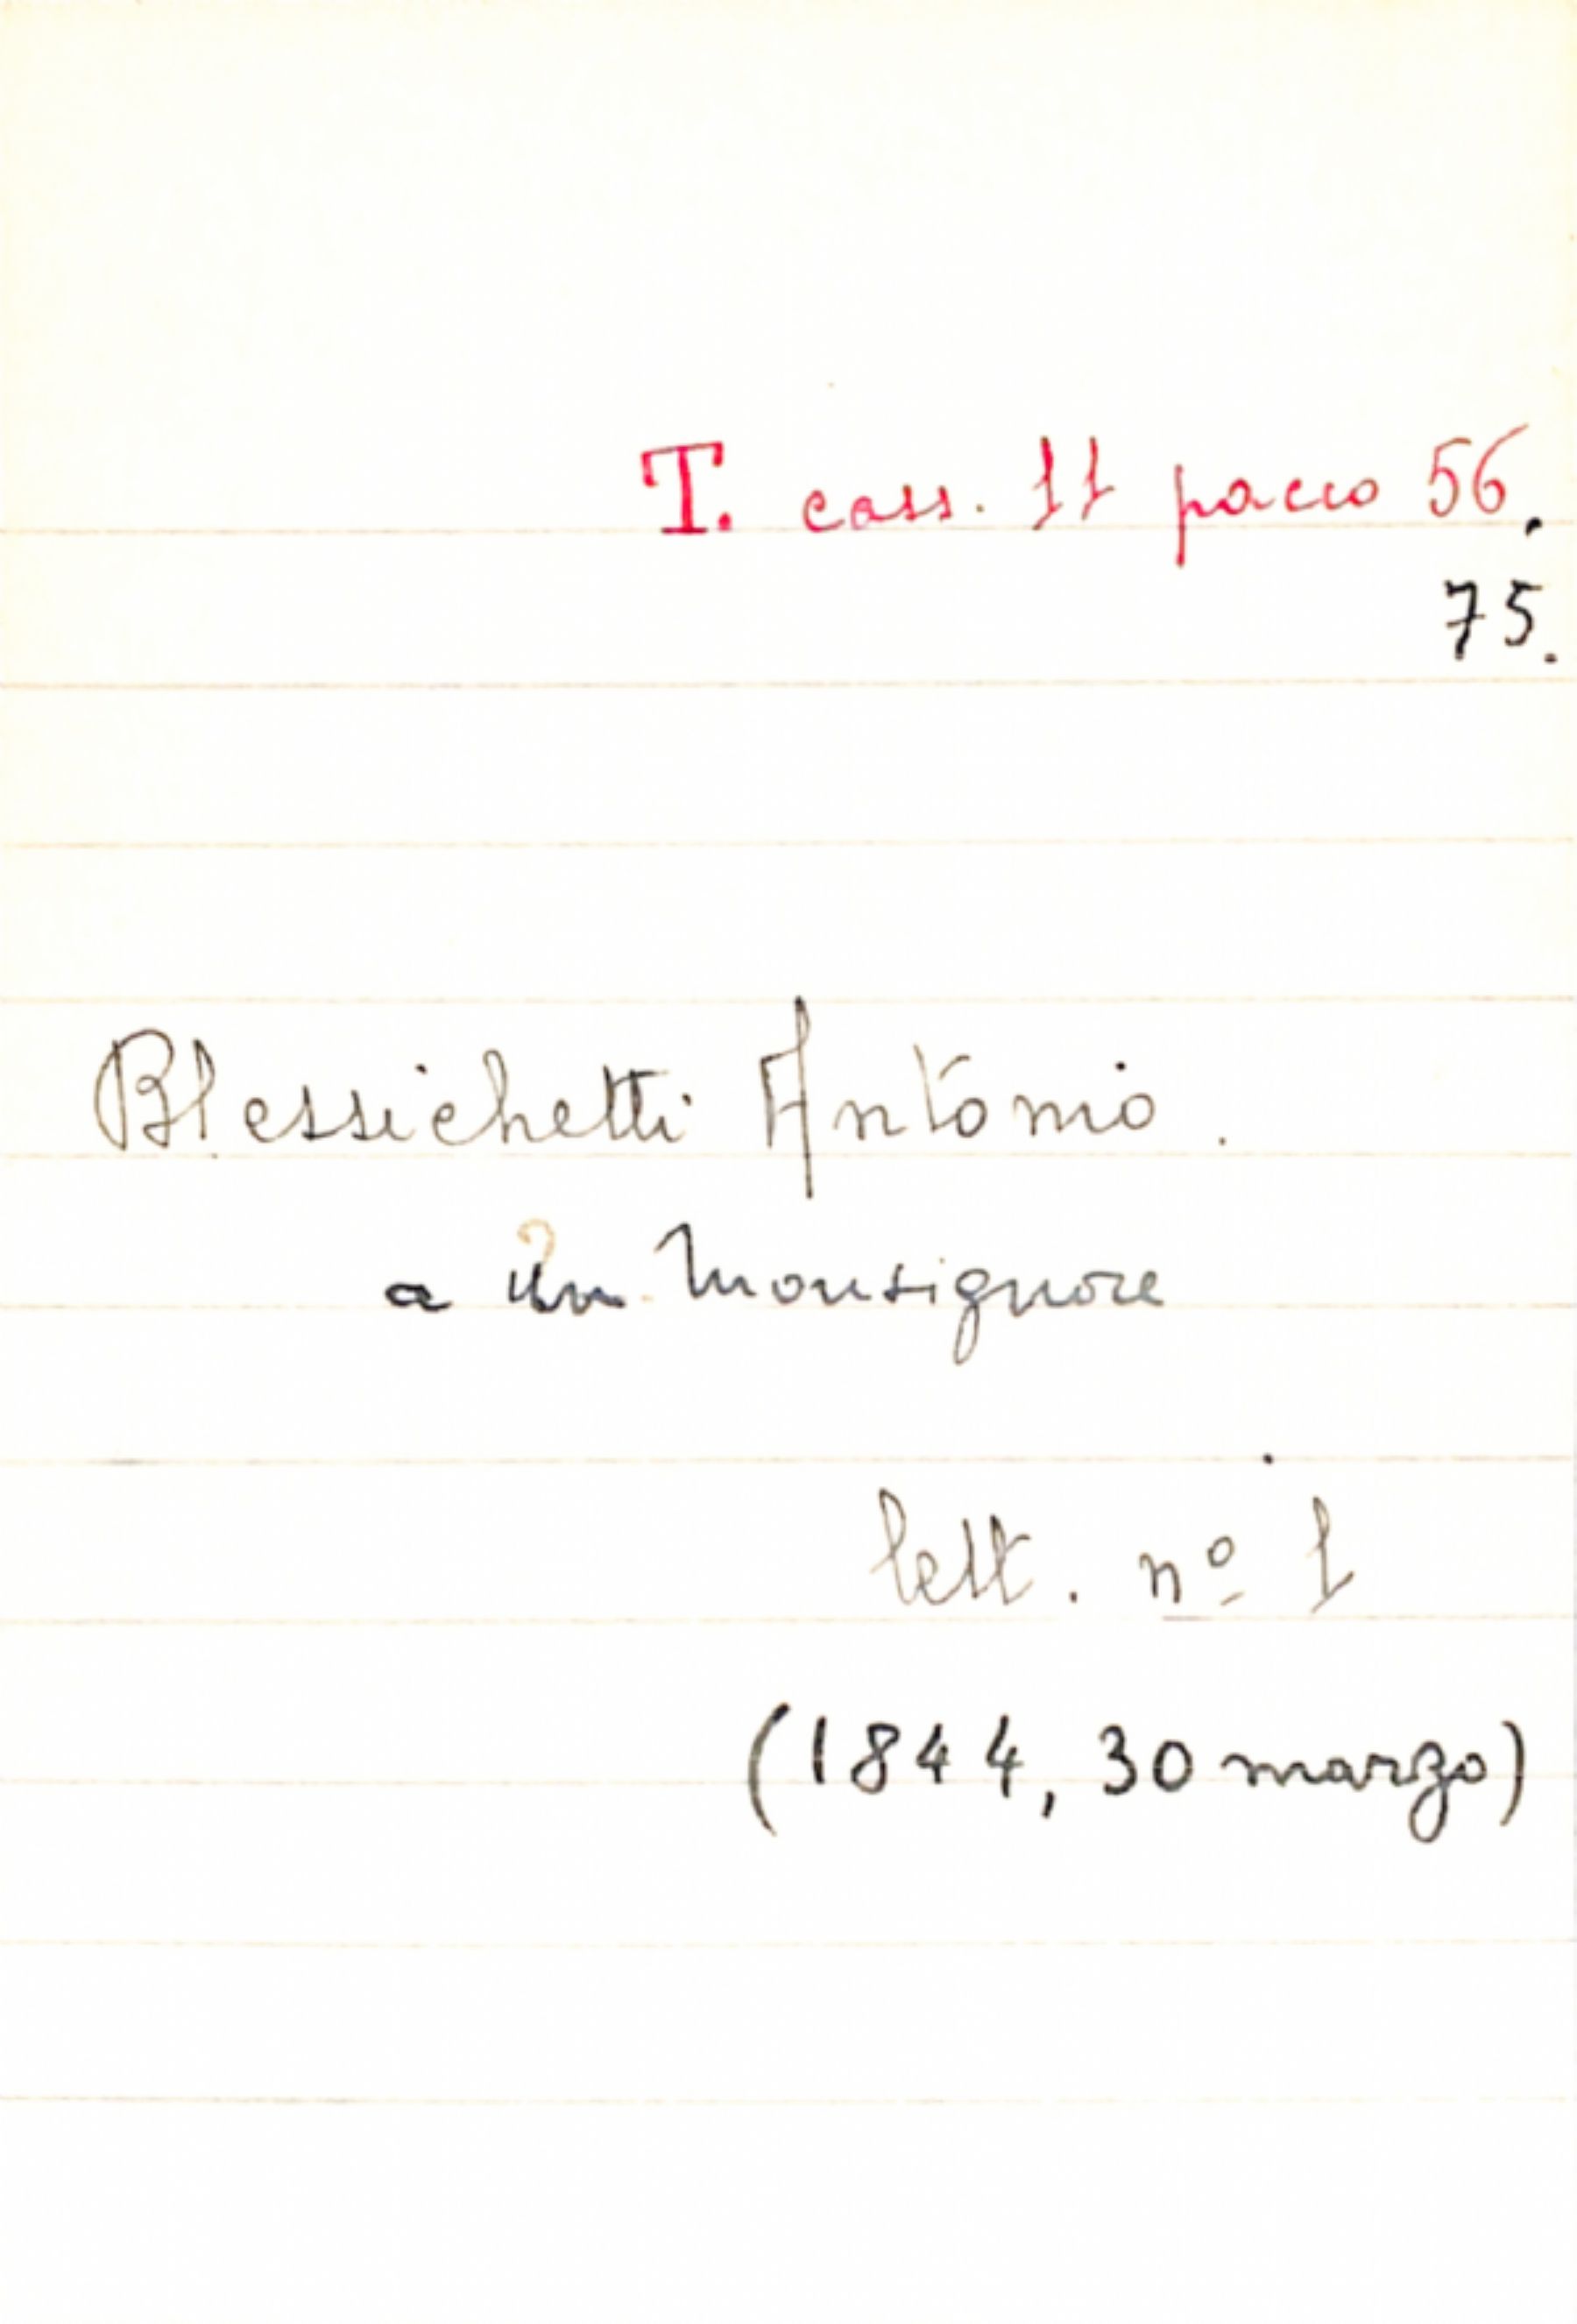 T. cass. 11 pacco 56.
75.
Blessichetti Antonio.
a un Monsignore
lett. nº 1
(1844, 30 marzo)